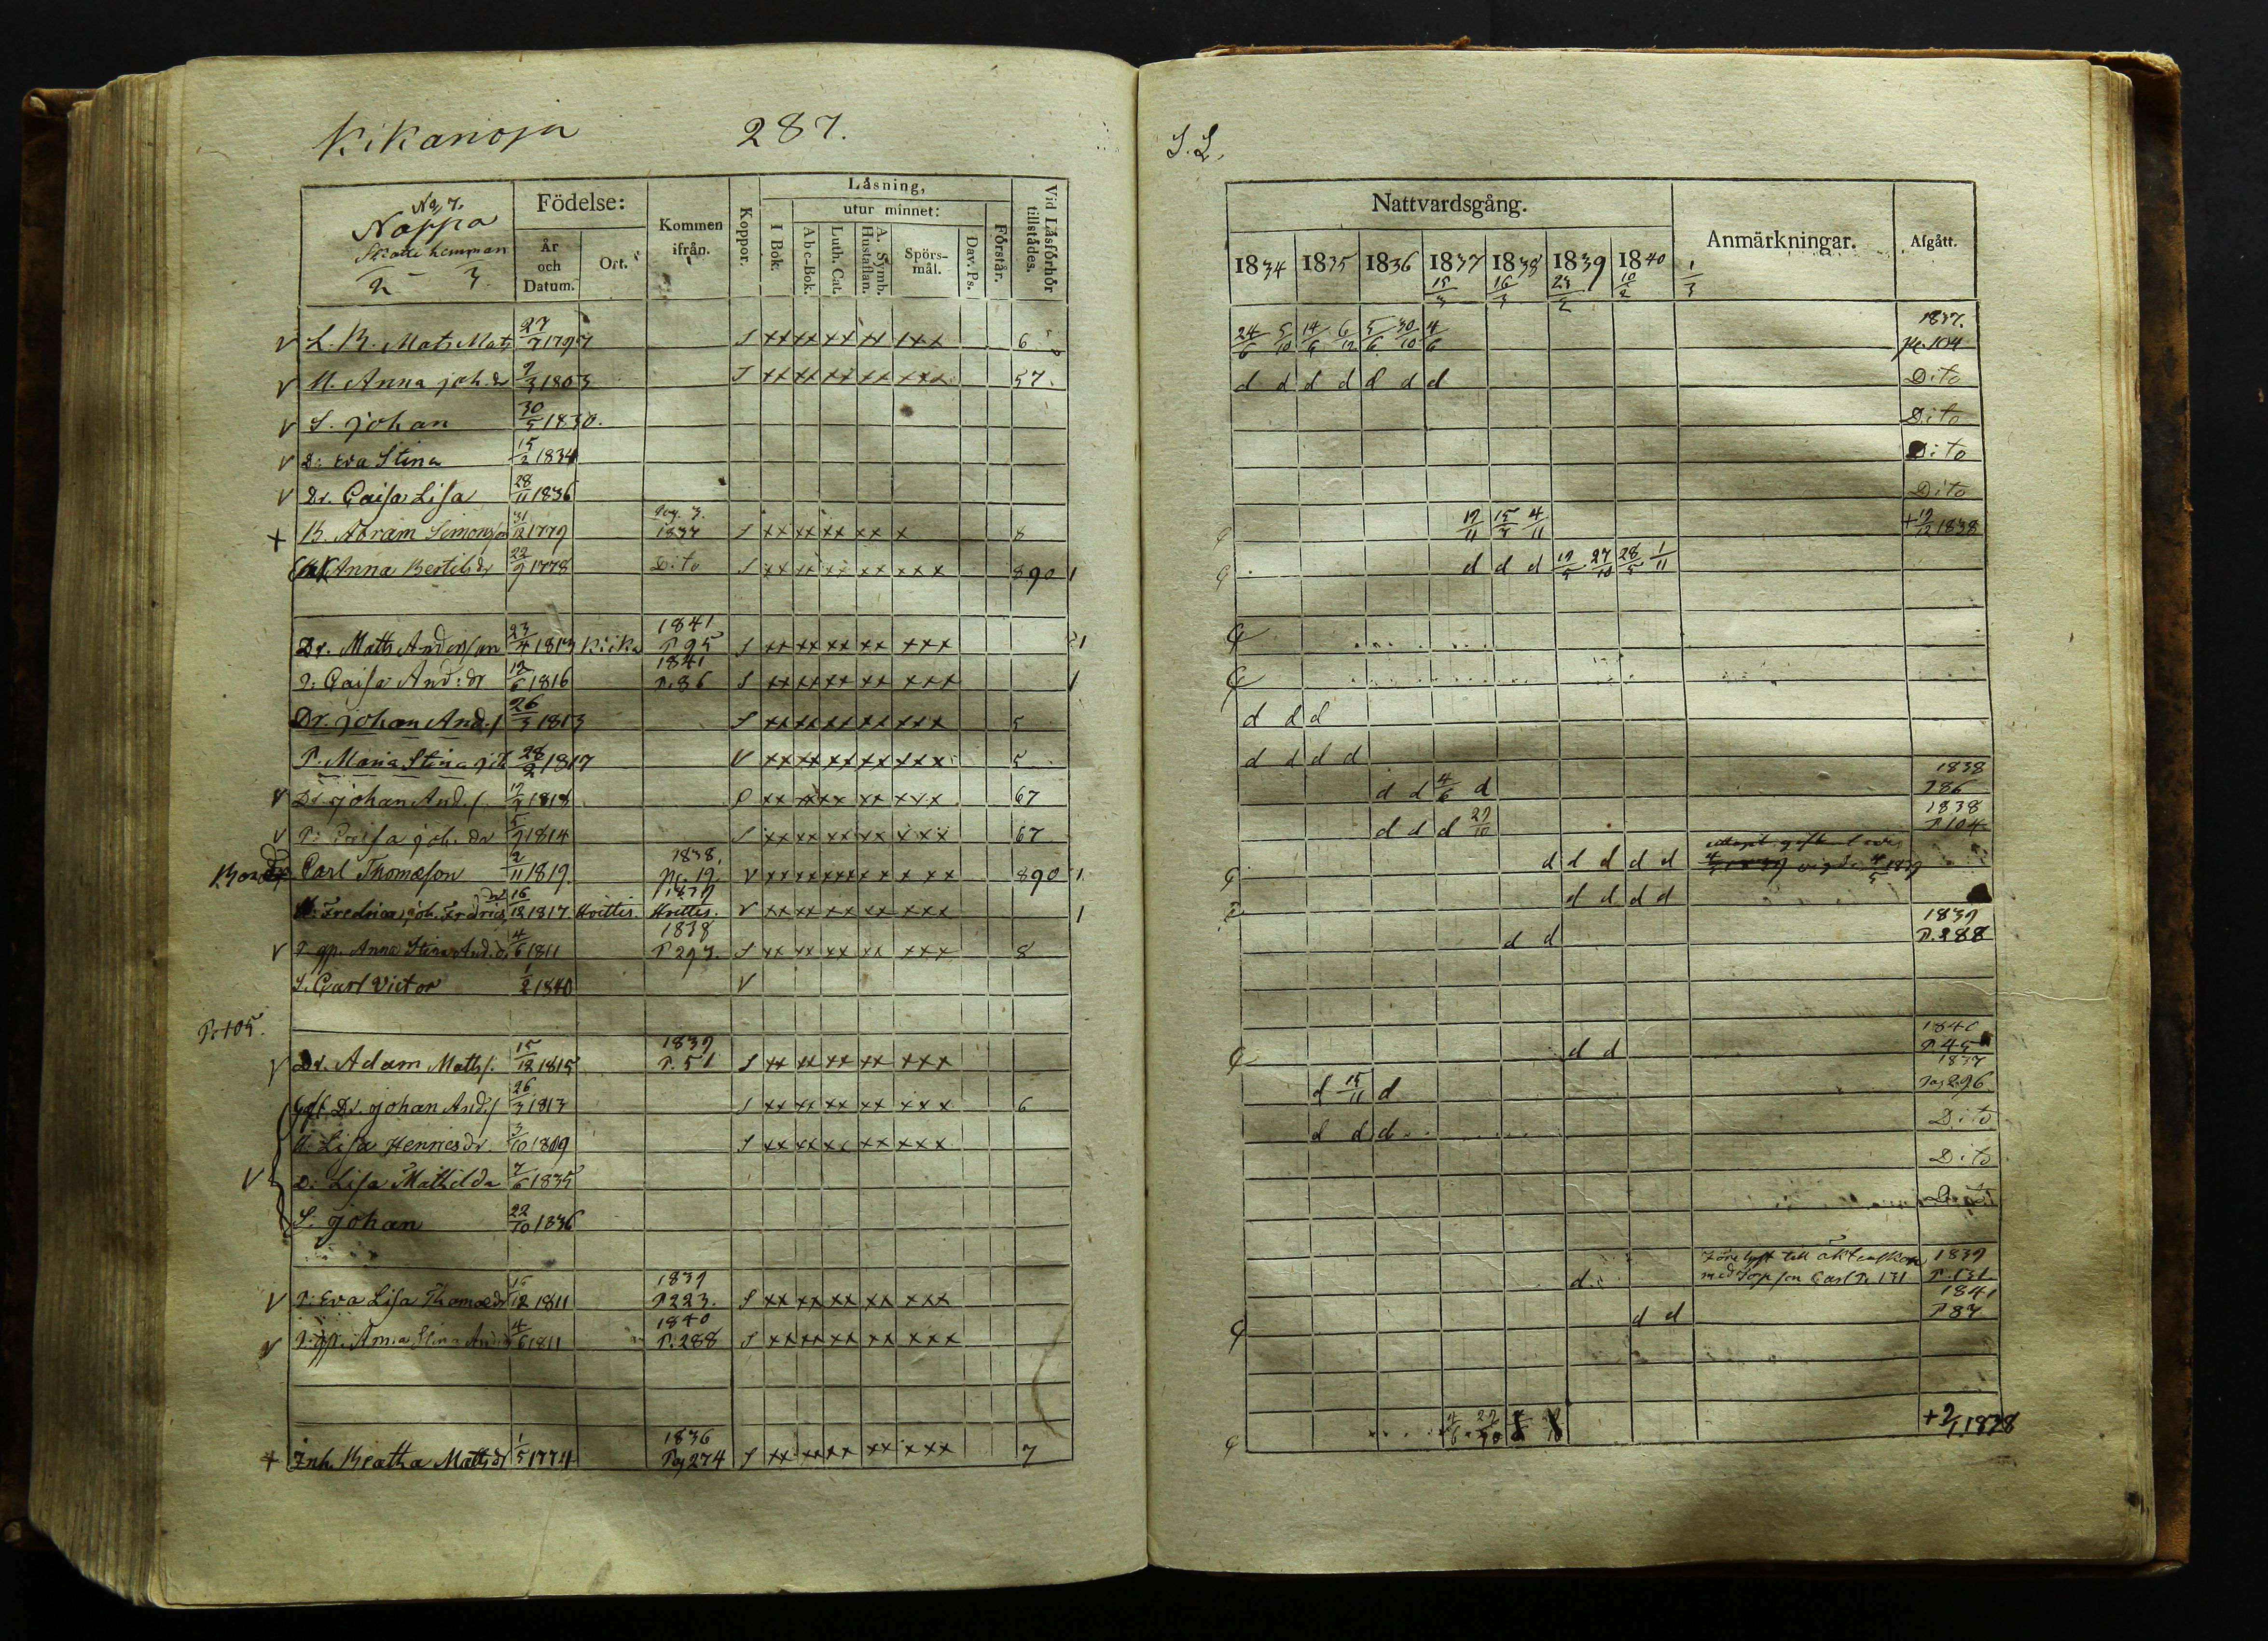 Kikanoja 287.
No 7.
Noppa
Skatte hemman
Födelse:
År och Datum.
Ort.
Kommen ifrån.
Koppor.
Läsning,
utur minnet:
I Bok.
Abc-Bok.
Luth. Cat.
A. Symb. Hustaflan.
Spörs-mål.
Dav. Ps.
Förstår.
Vid Läsförhör tillstädes.
V L. B. Mats Mats 27/7 1797 S xx xx xx xx xxx 6
V M. Anna joh. dr 9/3 1803 S xx xx xx xx xxx 57.
V S. johan 30/5 1830.
V D: Eva Stina 15/2 1834
V Dr. Caisa Lisa 28/11 1836
+ B. Abram Simonson 31/12 1779 1837 S xx xx xx xx x 8
Anna Bertils dr 22/9 1778 Dito S xx xx xx xx xxx 890 1
Dr. Matts Anderson 23/4 1813 Kika 1841 P 95 S xx xx xx xx xxx 1
P: Caisa And: dr 12/6 1816 1841 P. 86 S xx xx xx xx xxx 1
Dr. johan And./ 26/3 1813 S xx xx xx xx xxx 5
P. Maria Stina joh 28/2 1817 V xx xx xx xx xxx 5
V Dr johan And./ 1818 xx xx xx xx xxx 67
V P: Caisa joh. dr 5/9 1814 S xx xx xx xx xxx 67
Carl Thomæson 2/11 1819. 1838. P. 19. V xx xx xx xx xxx 890 1
Fredrica joh. Fredrics 16/12 1817 Hvittis. 1839 Hvittis. V xx xx xx xx xxx 1
V P gp. Anna Stina And. d. 4/6 1811 1838 P 293. S xx xx xx xx xxx 8
S. Carl Victor 1/2 1840 V
P. 105.
V Dr. Adam Mats/. 15/12 1815 1839 P. 51 S xx xx xx xx xxx
Gift Dr. johan And./ 26/3 1813 S xx xx xx xx xxx 6
H. Lisa Henricsdr. 3/10 1809 S xx xx xx xx xxx
V D: Lisa Mathilda 7/6 1835
S. johan 22/10 1836
V P: Eva Lisa Thomædr 15/12 1811 1839 P 223. S xx xx xx xx xxx
V P: gp. Anna Stina And. 4/6 1811 1840 P. 288 S xx xx xx xx xxx
+ Inh. Beatha Mattsdr 1/5 1774 1836 Pag 274 S xx xx xx xx xxx 7
S. L.
Nattvardsgång.
Anmärkningar.
Afgått.
1834 1835 1836 1837 1838 1839 1840
15/3 16/3 23/2 10/2 1/3
24/6 5/10 14/6 6/12 5/6 30/10 4/6 1837. P. 104
d d d d d d d Dito
Dito
Dito
Dito
19/11 15/7 4/11 + 19/12 1838
d d d 19/5 27/10 28/5 1/11
d d d
d d d d
d d 4/6 d 1838 P 86
d d d 29/10 1838 P 104
d d d d d vigda 4/5 1839
d d d d
d d 1839 P. 288
d d 1840 P 45
d 15/11 d 1837 Pag 296
d d d Dito
Dito
Dito
d Förelyst till äktenskap
med Carl P. 131 1839 P. 131
d d 1841 P 87
4/6 29/10 + 2/1 1838